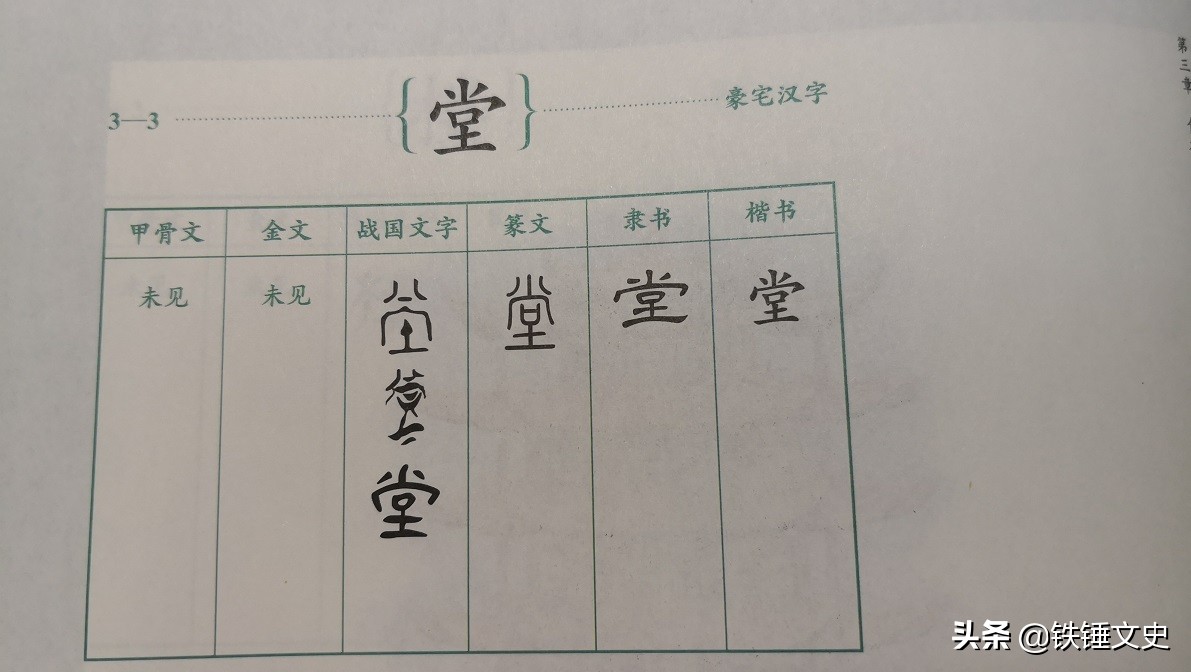 3—3 {堂} 豪宅汉字
甲骨文 金文 战国文字 篆文 隶书 楷书
未见 未见 堂 堂 堂 堂
堂
堂
第三章
头条 @铁锤文史